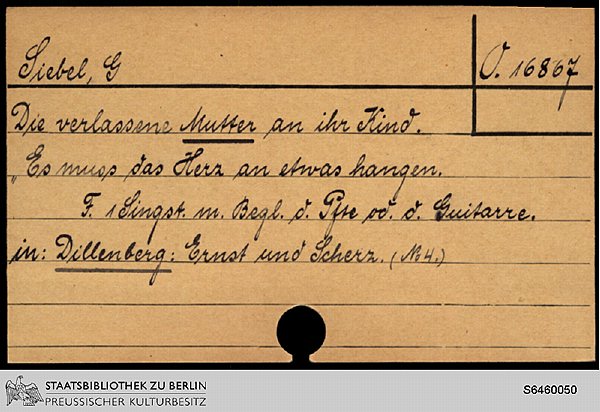 Siebel, G
O. 16867
Die verlassene Mutter an ihr Kind.
„Es muss das Herz an etwas hangen.
F. 1 Singst. m. Begl. d. Pfte od. d. Guitarre.
in: Dillenberg: Ernst und Scherz. (№ 4.)
STAATSBIBLIOTHEK ZU BERLIN
PREUSSISCHER KULTURBESITZ
S6460050